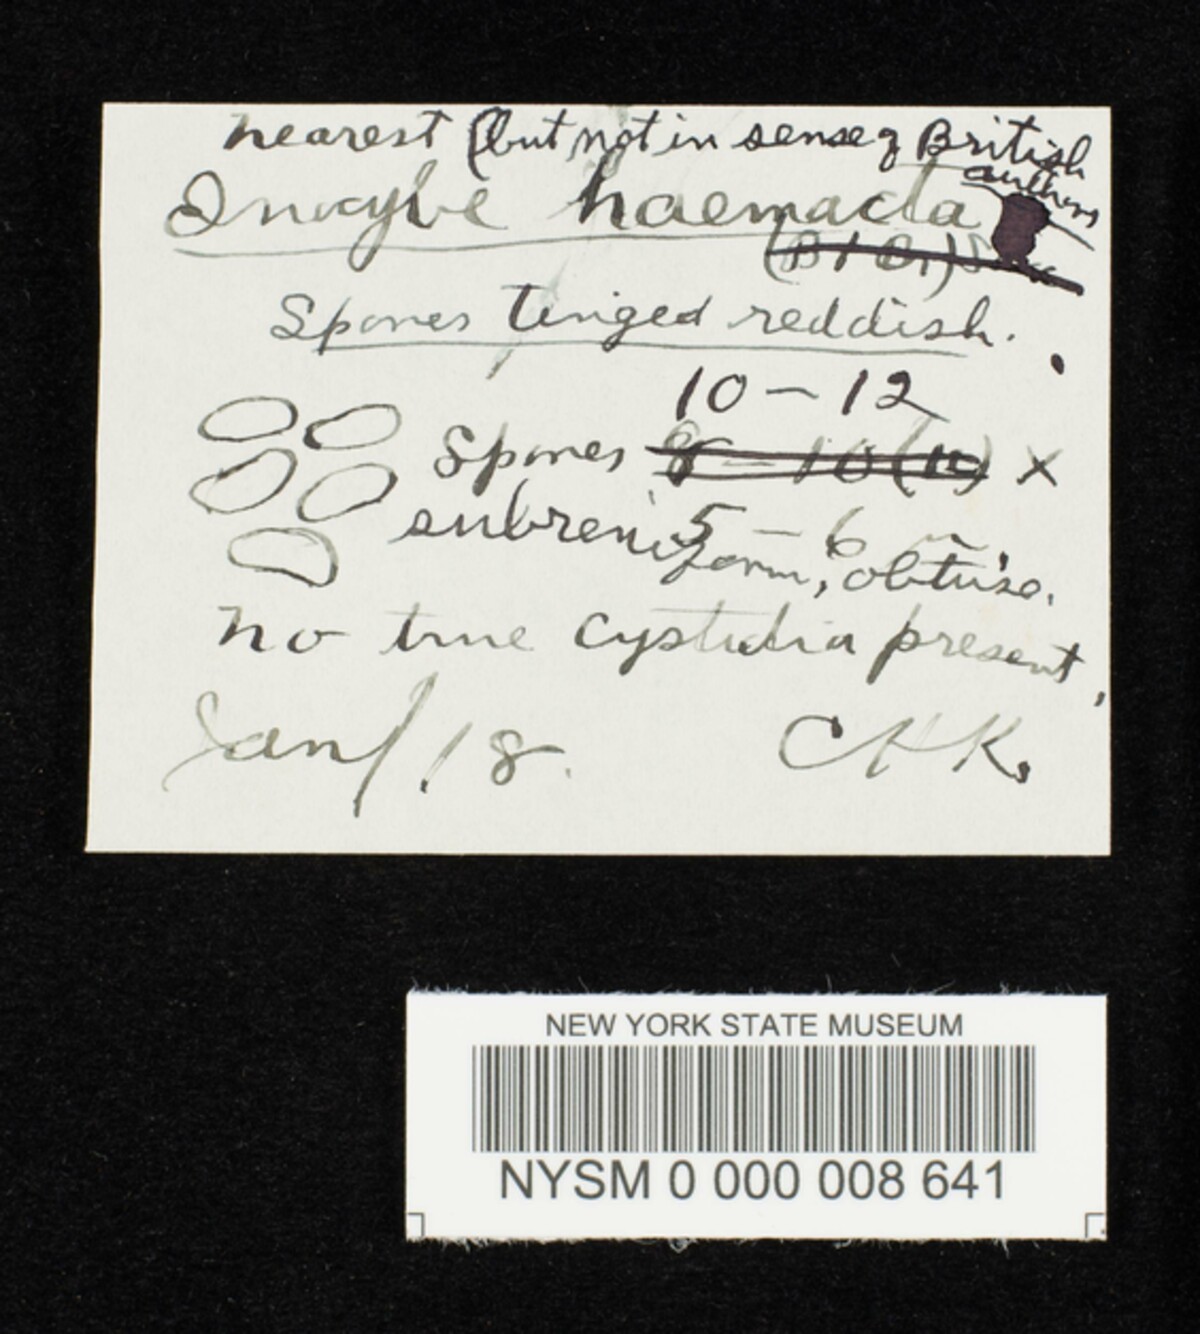 nearest (but not in sense of British
authors
Inocybe haemacta
(B & Br)
Spores tinged reddish.
10 – 12
Spores 8 – 10 (12) ×
5 – 6
subreniform, obtuse.
No true cystidia present.
Jan / 18. CHK.
NEW YORK STATE MUSEUM
NYSM 0 000 008 641